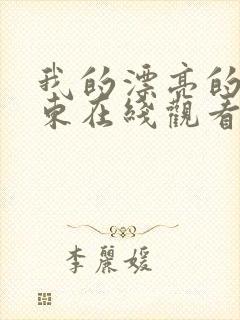 我的漂亮的
東在綫觀看
李麗媛